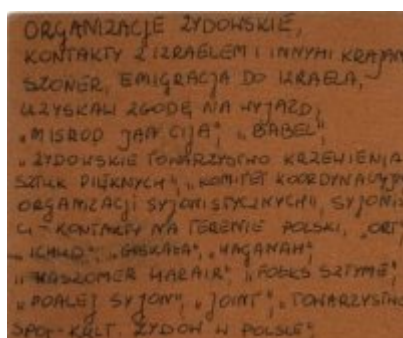 ORGANIZACJE ŻYDOWSKIE,
KONTAKTY Z IZRAELEM I INNYMI KRAJAMI
SZONER, EMIGRACJA DO IZRAELA,
UZYSKALI ZGODĘ NA WYJAZD,
"MISROD "BABEL",
"ŻYDOWSKIE TOWARZYSTWO KRZEWIENIA
SZTUK PIĘKNYCH", "KOMITET KOORDYNACYJN
ORGANIZACJI SYJONISTYCZNYCH", SYJONIŚ
CI - KONTAKTY NA TERENIE POLSKI, "ORT"
"ICHUD", "GISKAŁA", "HAGANAH",
"HASZOMER HARAIR", "FOLKS SZTYME",
"POALEJ SYJON", "JOINT", "TOWARZYSTWO
SPOŁ-KULT. ŻYDÓW W POLSCE",